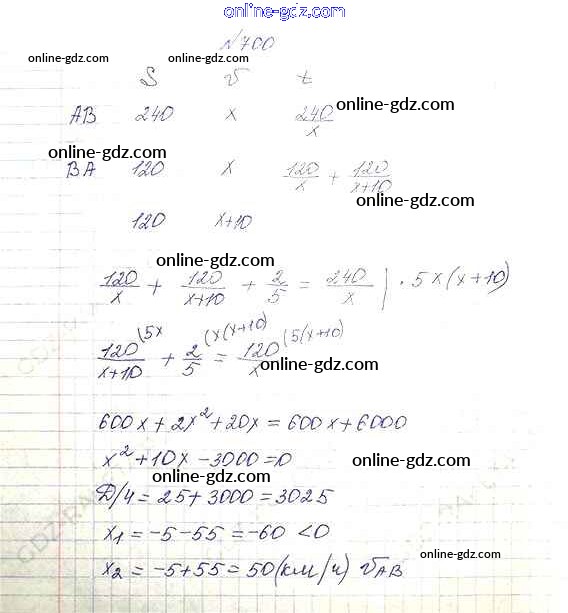 online-gdz.com
N700
online-gdz.com online-gdz.com
S v t
AB 240 x 240/x online-gdz.com
online-gdz.com
BA 120 x 120/x + 120/(x+10)
online-gdz.com
120 x+10
online-gdz.com
120/x + 120/(x+10) + 2/5 = 240/x | · 5x(x+10)
120/(x+10) (5x + 2/5 (x(x+10) = 120/x (5(x+10)
online-gdz.com
600x + 2x² + 20x = 600x + 6000
x² + 10x - 3000 = 0
online-gdz.com
Д/4 = 25 + 3000 = 3025
online-gdz.com
x1 = -5 - 55 = -60 < 0
online-gdz.com
x2 = -5 + 55 = 50 (км/ч) vAB